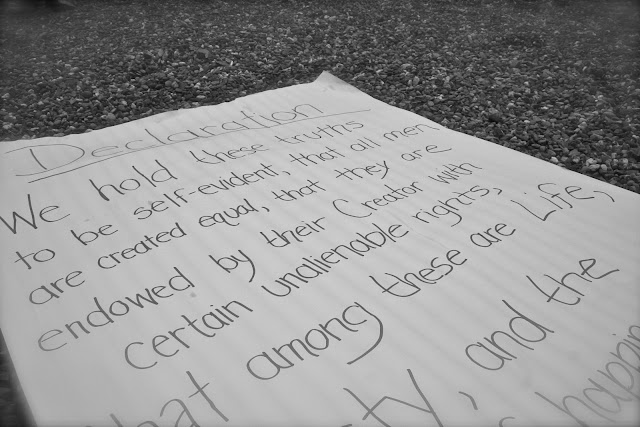 Declaration
We hold these truths
to be self-evident, that all men
are created equal, that they are
endowed by their Creator with
certain unalienable rights,
that among these are Life,
ty, and the
happin